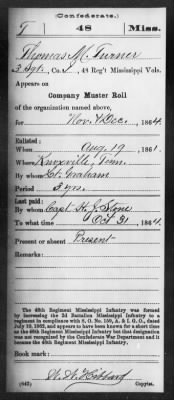 (Confederate.)
T 48 Miss.
Thomas M. Turner
3 Sgt., Co. , 48 Reg't Mississippi Vols.
Appears on
Company Muster Roll
of the organization named above,
for Nov. & Dec., 1864.
Enlisted:
When Aug. 19, 1861.
Where Knoxville, Tenn.
By whom Lt. Graham
Period 3 yrs.
Last paid:
By whom Capt. H. J. Stone
To what time Oct 31, 1864.
Present or absent Present
Remarks:
The 48th Regiment Mississippi Infantry was formed by increasing the 2d Battalion Mississippi Infantry to a regiment in compliance with S. O. No. , A. & I. G. O., dated and appears to have been known for a short time as the 66th Regiment Mississippi Infantry but that designation was not recognized by the Confederate War Department and it became the 48th Regiment Mississippi Infantry.
Book mark:
W. W. Hibbard
(642) Copyist.